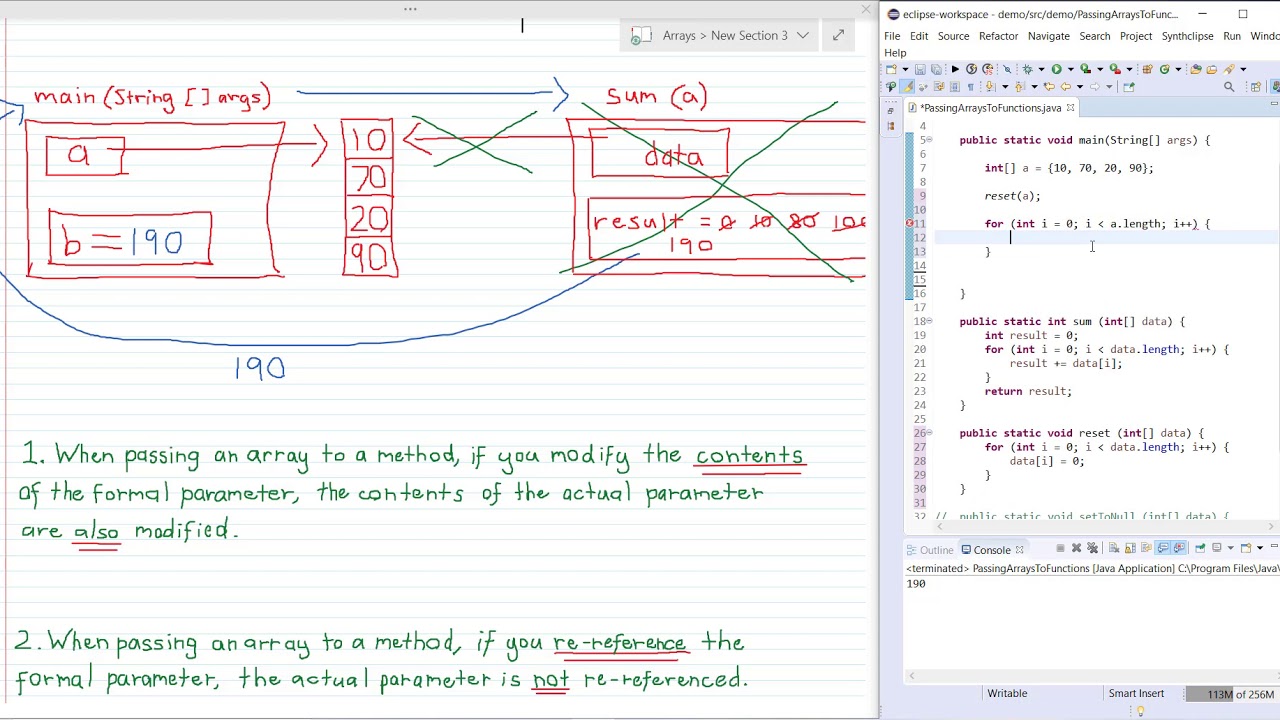 Arrays > New Section 3
main (String [] args)
sum (a)
a
10
70
20
90
data
b = 190
result = 0 10 80 100
190
190
1. When passing an array to a method, if you modify the contents
of the formal parameter, the contents of the actual parameter
are also modified.
2. When passing an array to a method, if you re-reference the
formal parameter, the actual parameter is not re-referenced.
eclipse-workspace - demo/src/demo/PassingArraysToFunc...
File Edit Source Refactor Navigate Search Project Synthclipse Run Windo
Help
*PassingArraysToFunctions.java
4
5 public static void main(String[] args) {
6
7 int[] a = {10, 70, 20, 90};
8
9 reset(a);
10
11 for (int i = 0; i < a.length; i++) {
12
13 }
14
15
16 }
17
18 public static int sum (int[] data) {
19 int result = 0;
20 for (int i = 0; i < data.length; i++) {
21 result += data[i];
22 }
23 return result;
24 }
25
26 public static void reset (int[] data) {
27 for (int i = 0; i < data.length; i++) {
28 data[i] = 0;
29 }
30 }
31
32 // public static void setToNull (int[] data) {
Outline Console
<terminated> PassingArraysToFunctions [Java Application] C:\Program Files\Java\
190
Writable Smart Insert 113M of 256M